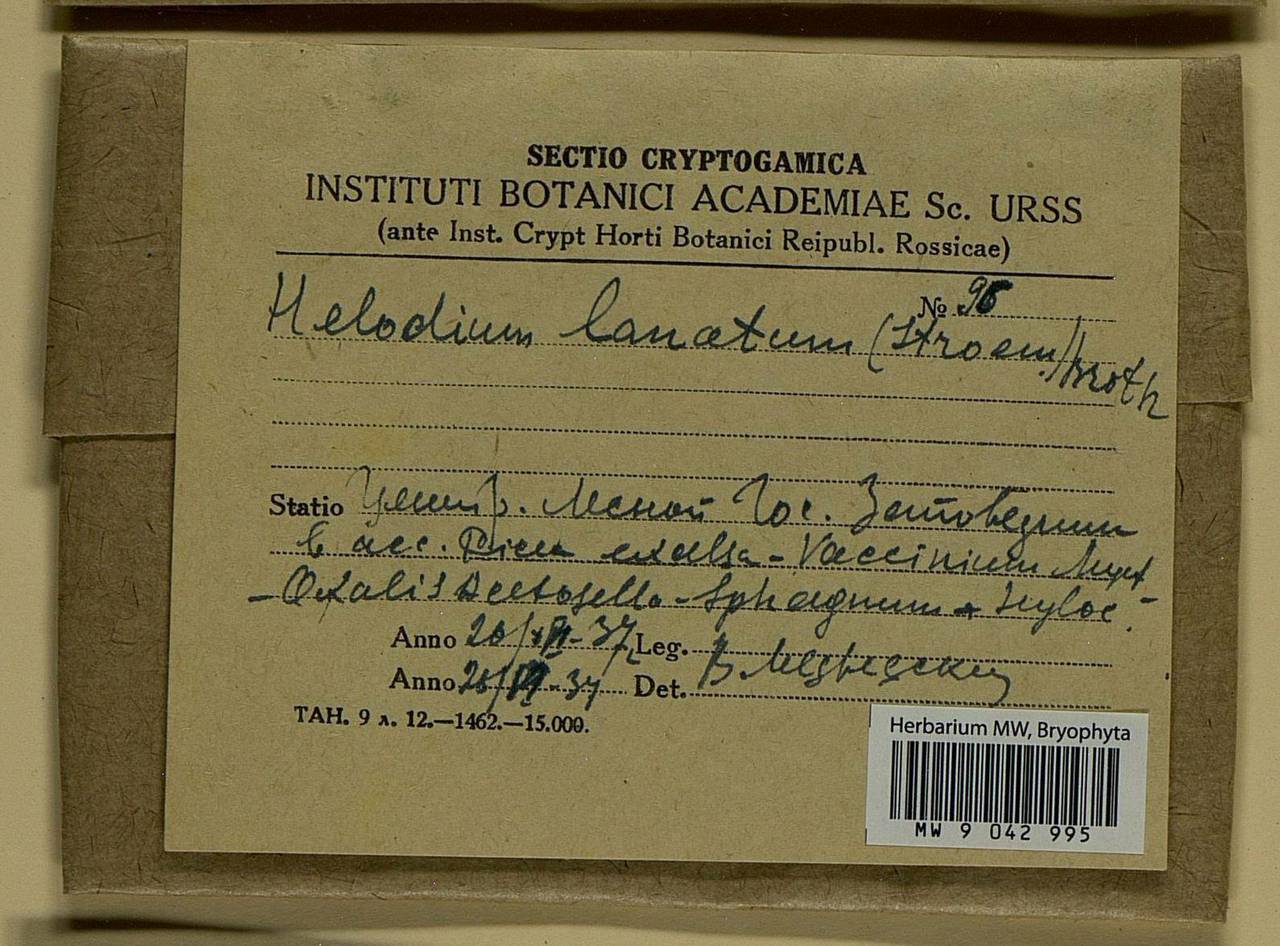 SECTIO CRYPTOGAMICA
INSTITUTI BOTANICI ACADEMIAE Sc. URSS
(ante Inst. Crypt Horti Botanici Reipubl. Rossicae)
№ 95
Helodium lanatum (Stroem.) Broth
Statio Лесной Гос. Заповедник
в асс. Picea excelsa - Vaccinium Myrt -
- Oxalis Acetosella - Sphagnum + Hyloc.
Anno 26/ - 37 Leg.
Anno 26/ - 37 Det. В
ТАН. 9 л. 12.—1462.—15.000.
Herbarium MW, Bryophyta
MW 9 042 995